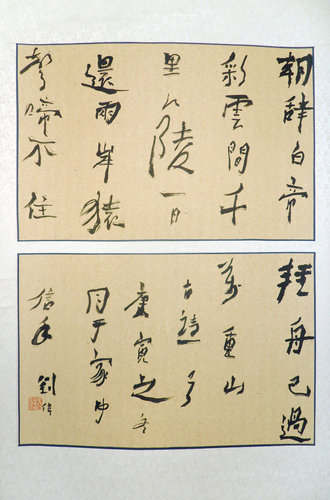 朝辭白帝
彩雲間千
里江陵一日
還兩岸猿
聲啼不住
輕舟已過
萬重山
古詩
庚寅之冬
月于家中
信手 劉